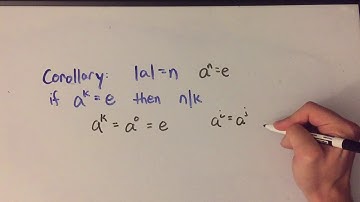 Corollary: |a|=n aⁿ=e
if aᵏ=e then n|k
aᵏ = a⁰ = e aⁱ=aʲ